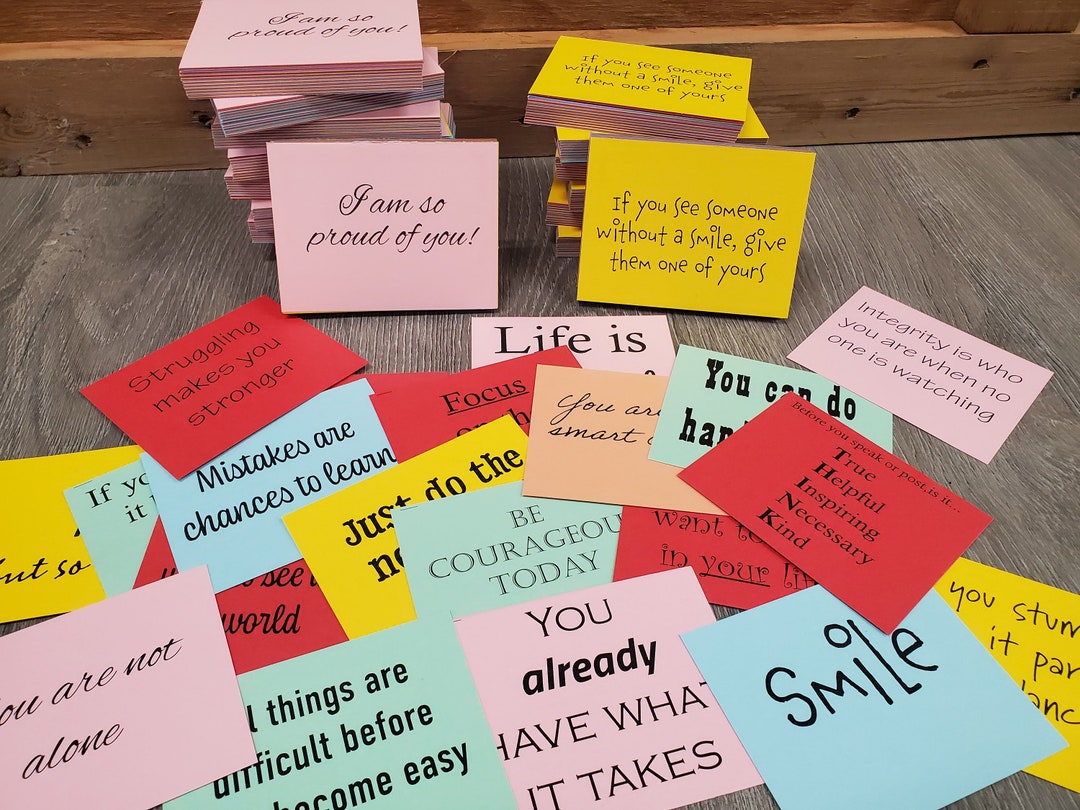 I am so
proud of you!
If you see someone
without a smile, give
them one of yours
I am so
proud of you!
If you see someone
without a smile, give
them one of yours
Struggling
makes you
stronger
Life is
Integrity is who
you are when no
one is watching
Focus
on
You are
smart
You can do
Before you speak or post, is it...
True
Helpful
Inspiring
Necessary
Kind
Mistakes are
chances to learn
Just do the
If
it
but so
BE
COURAGEOU
TODAY
want
in your
see
world
you stum
it par
YOU
already
HAVE WHAT
IT TAKES
Smile
you are not
alone
things are
difficult before
become easy